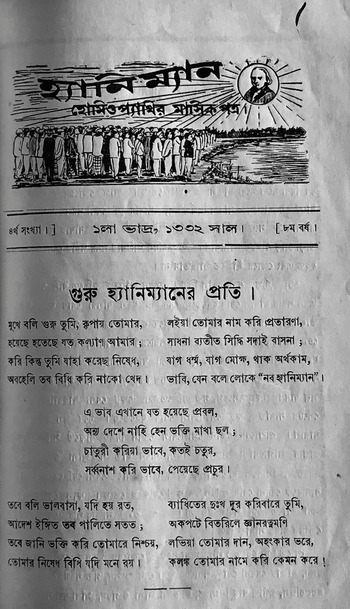 হ্যানিম্যান
হোমিওপ্যাথির মাসিক পত্র।
৪র্থ সংখ্যা।] ১লা ভাদ্র, ১৩৩২ সাল। [৮ম বর্ষ।
গুরু হ্যানিম্যানের প্রতি।
মুখে বলি গুরু তুমি, কৃপায় তোমার,
হয়েছে হতেছে যত কল্যাণ আমার;
করি কিন্তু তুমি যাহা করেছ নিষেধ,
অবহেলি তব বিধি করি নাকো খেদ।
লইয়া তোমার নাম করি প্রতারণা,
সাধনা ব্যতীত সিদ্ধি সদাই বাসনা;
যাগ ধর্ম্ম, যাগ মোক্ষ, থাক অর্থকাম,
ভাবি, যেন বলে লোকে "নব হ্যানিম্যান"।
এ ভাব এখানে যত হয়েছে প্রবল,
অন্য দেশে নাহি হেন ভক্তি মাখা ছল;
চাতুরী করিয়া ভাবে, কতই চতুর,
সর্ব্বনাশ করি ভাবে, পেয়েছে প্রচুর।
তবে বলি ভালবাসা, যদি হয় রত,
আদেশ ইঙ্গিত তব পালিতে সতত;
তবে জানি ভক্তি করি তোমারে নিশ্চয়,
তোমার নিষেধ বিধি যদি মনে রয়।
ব্যাধিতের দুঃখ দূর করিবারে তুমি,
অকপটে বিতরিলে জ্ঞানরত্নমণি
লভিয়া তোমার দান, অহংকার ভরে,
কলঙ্ক তোমার নামে করি কেমন করে!